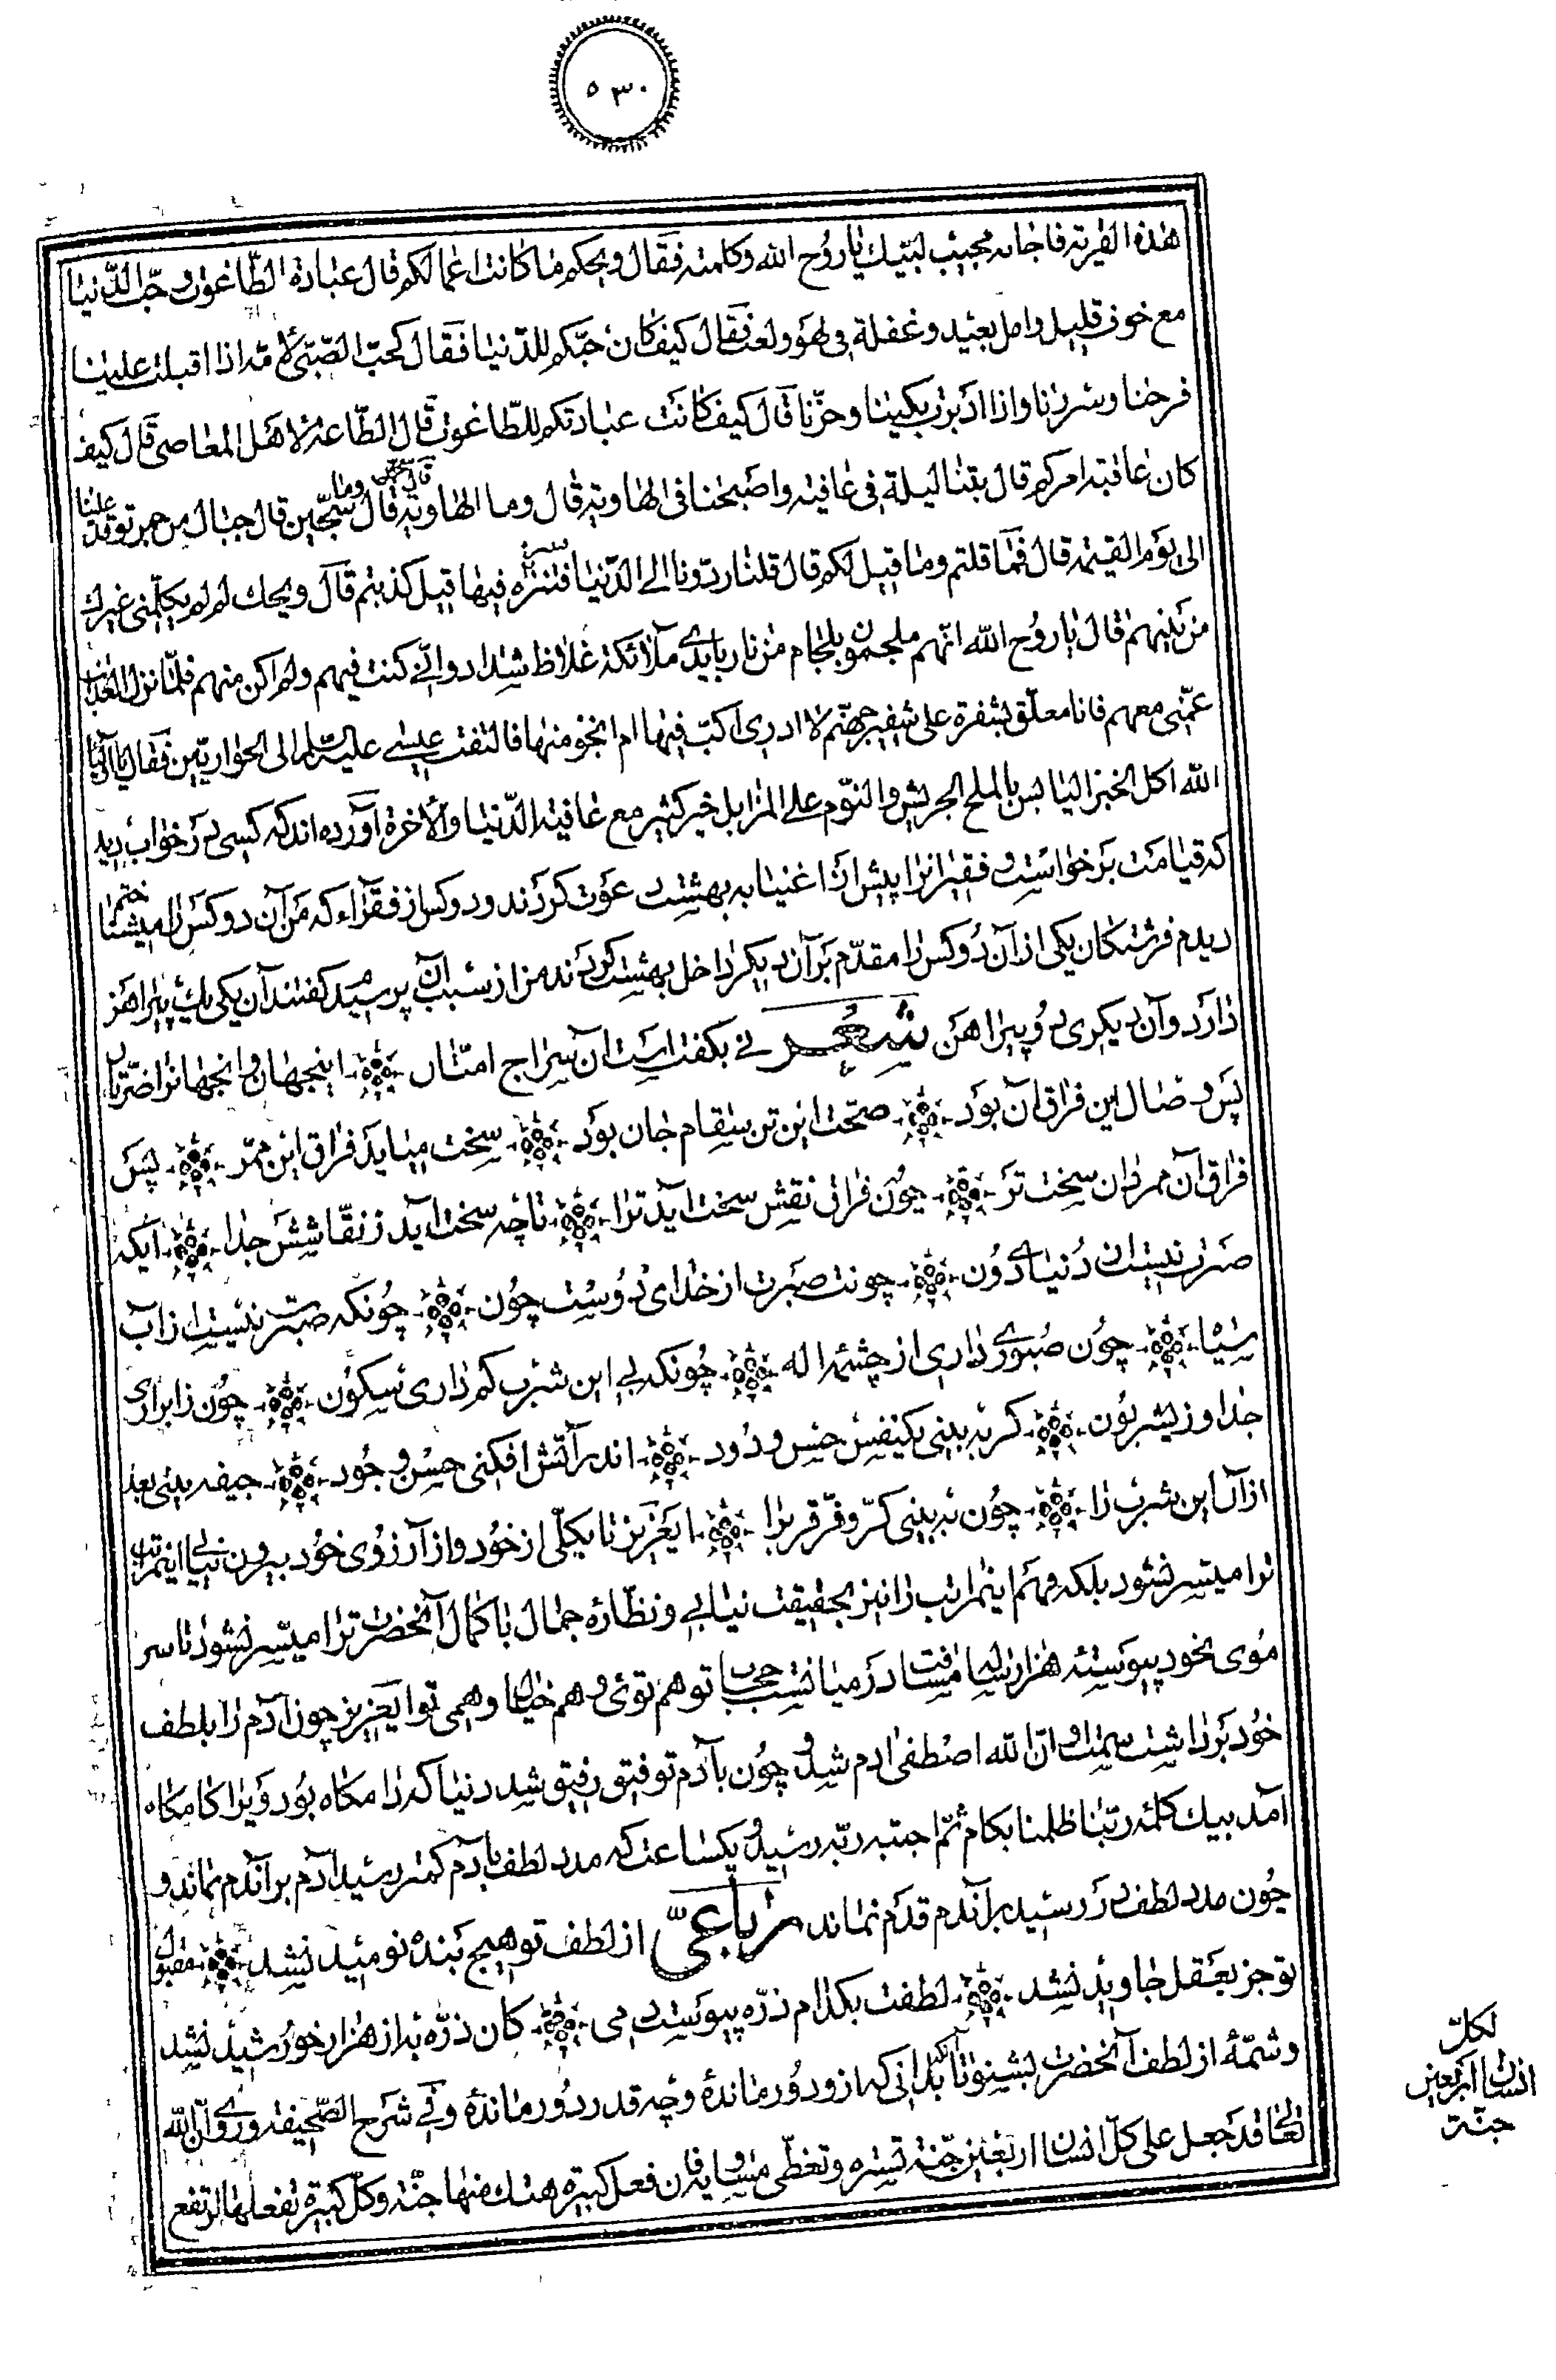 ٥٣٠
هذه القریة فاجابه مجیب لبّیك یا روح الله وکلمته فقال ویحکم ما کانت اعمالکم قال عبادة الطّاغوت وحبّ الدّنیا
مع خوف قلیل وامل بعید وغفلة فی لهو ولعب فقال کیف کان حبّکم للدّنیا فقال کحبّ الصّبیّ لامّه اذا اقبلت علینا
فرحنا وسررنا واذا ادبرت بکینا وحزّنا قال کیف کانت عبادتکم للطّاغوت قال الطّاعة لاهل المعاصی قال کیف
کان عاقبة امرکم قال بتنا لیلة فی عافیة واصبحنا فی الهاویة قال وما الهاویة قال سجّین قال وما سجّین قال جبال من جمر توقد علینا
الی یوم القیمة قال فما قلتم وما قیل لکم قال قلنا ردّونا الی الدّنیا فنزهد فیها قیل کذبتم قال ویحك لم لم یکلّمنی غیرك
من بینهم قال یا روح الله انّهم ملجمون بلجام من نار بایدی ملائکة غلاظ شداد وانّی کنت فیهم ولم اکن منهم فلمّا نزل العذاب
عمّنی معهم فانا معلّق بشفرة علی شفیر جهنّم لا ادری اکبّ فیها ام انجو منها فالتفت عیسی علیه السلام الی الحواریّین فقال یا اولیاء
الله اکل الخبز الیابس بالملح الجریش والنّوم علی المزابل خیر کثیر مع عافیة الدّنیا والأخرة آورده اند که کسی در خواب دید
که قیامت برخواست و فقیرانرا پیش از اغنیا به بهشت دعوت کردند و دو کس از فقراء که من آن دو کس را میشناختم
دیدم فرشتگان یکی از آن دو کس را مقدّم بر آن دیگر داخل بهشت کردند من از سبب آن پرسیدم گفتند آن یکی یك پیراهن
دارد و آن دیگری دو پیراهن شعر نی بگفت است آن سراج امّتان اینجهان و آنجهانرا ضرّتان
پس وصال این فراق آن بود صحّت این تن سقام جان بود سخت میاید فراق این ممرّ پس
فراق آن ممر دان سخت تر چون فراق نقش سخت آید ترا تا چه سخت آید ز نقّاشش جدا ایکه
صبرت نیست از دنیای دون چونت صبرت از خدای دوست چون چونکه صبرت نیست از آب
سیا چون صبوری داری از چشمه اله چونکه بی این شرب کم داری سکون چون ز ابراری
جدا وز یشربون گر به بینی یکنفس حسن ودود اندر آتش افکنی حسن و جود جیفه بینی بعد
از آن این شرب را چون به بینی کرّ و فرّ قرب را ایعزیز تا بکلّی از خود و از آرزوی خود بیرون نیایی اینمرتبه
ترا میسر نشود بلکه وهم اینمراتب را نیز بحقیقت نیابی و نظّاره جمال با کمال آنحضرت ترا میسّر نشود تا سر
موی بخود پیوسته هزار ساله مسافت در میانست حجاب تو هم توئی و هم خیال و همی تو ایعزیز چون آدم را بلطف
خود برداشت سمت انّ الله اصطفی ادم شد و چون با آدم توفیق رفیق شد دنیا که دامگاه بود ویرا کامگاه
آمد بیك کلمه ربّنا ظلمنا بکام ثمّ اجتبه ربّه رسید و یکساعت که مدد لطف با دم کمتر رسید آدم بر آندم نماند و
چون مدد لطف در رسید بر آندم قدم نماند رباعیّ از لطف تو هیچ بنده نومید نشد مقبول
تو جز بعقل جاوید نشد لطفت بکدام ذرّه پیوست دمی کان ذرّه به از هزار خورشید نشد
و شمّهٔ از لطف آنحضرت بشنو تا بدانی که ازو دور ماندهٔ و چه قدر دور ماندهٔ وفی شرح الصّحیفة وروی انّ الله
تعالی قد جعل علی کلّ انسان اربعین جنّة تستره وتغطّی مساویه فان فعل کبیرة هتك منها جنّة وکلّ کبیرة تفعلها ترتفع
لکلّ
انسان اربعین
جنّة